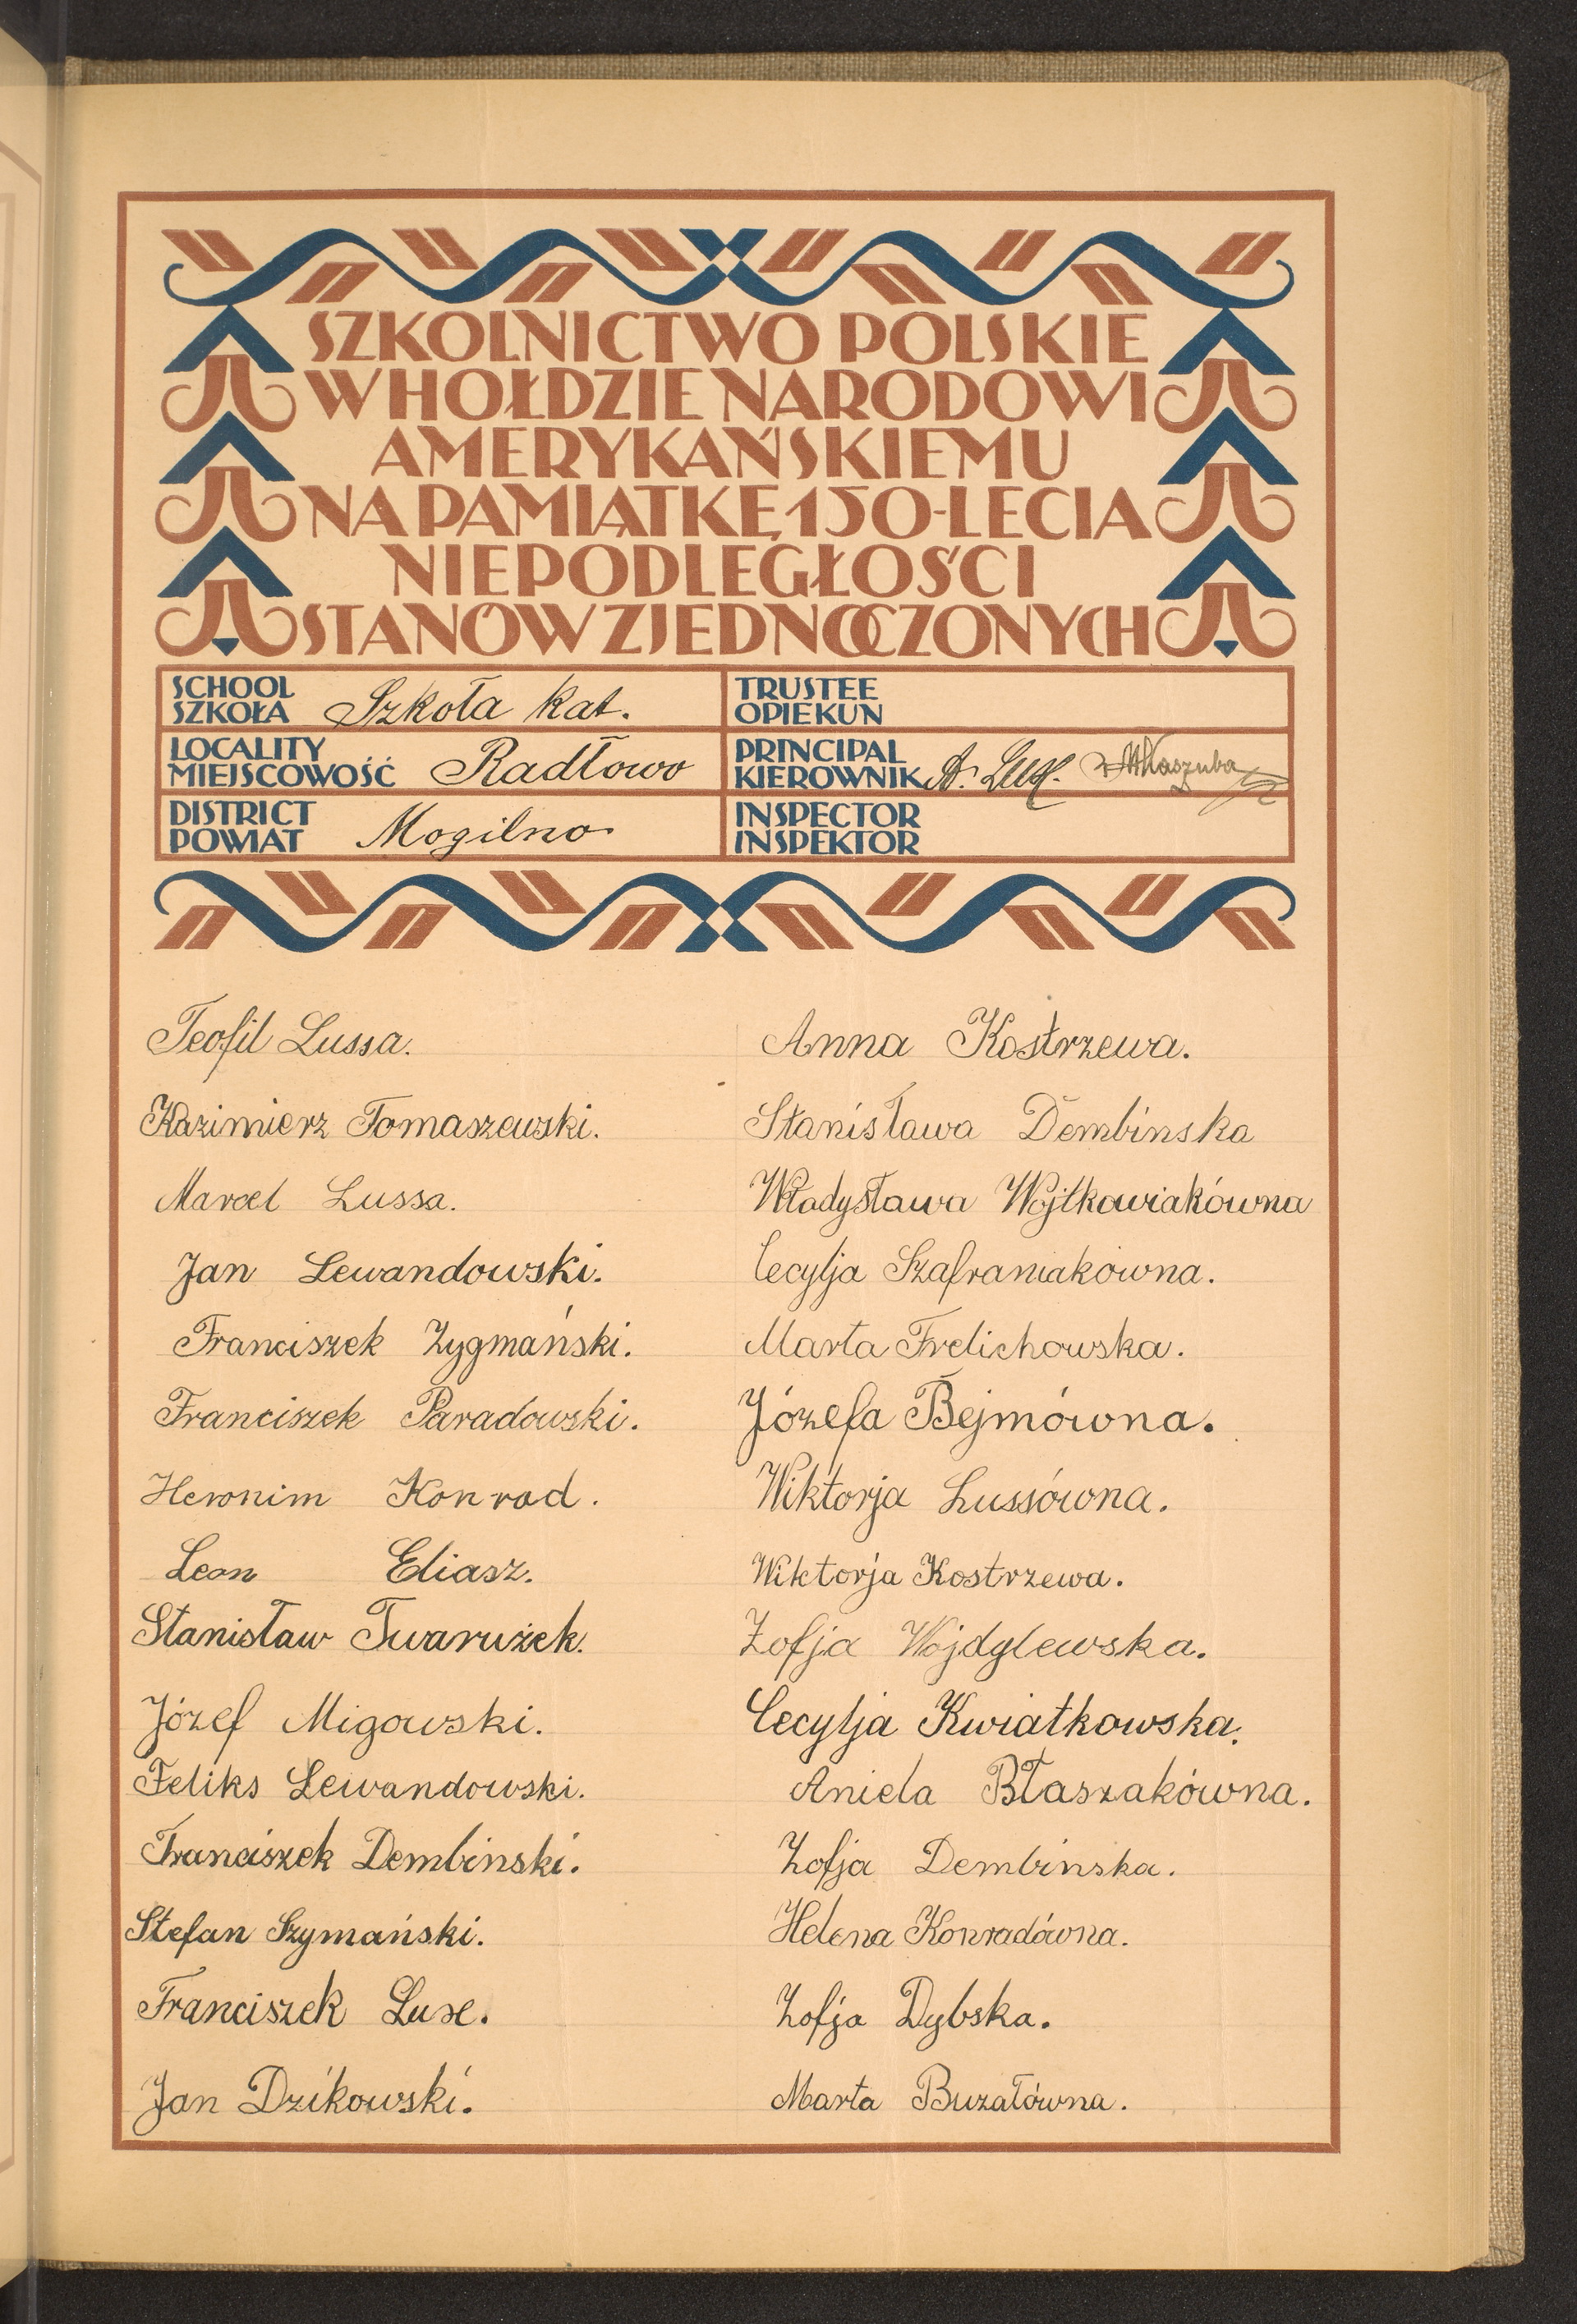 SZKOLNICTWO POLSKIE
W HOŁDZIE NARODOWI
AMERYKAŃSKIEMU
NA PAMIĄTKĘ 150-LECIA
NIEPODLEGŁOŚCI
STANÓW ZJEDNOCZONYCH
SCHOOL
SZKOŁA Szkoła kat.
TRUSTEE
OPIEKUN
LOCALITY
MIEJSCOWOŚĆ Radłowo
PRINCIPAL
KIEROWNIK A. Lux.
DISTRICT
POWIAT Mogilno
INSPECTOR
INSPEKTOR
Teofil Lussa.
Kazimierz Tomaszewski.
Marcel Lussa.
Jan Lewandowski.
Franciszek Zygmański.
Franciszek Paradowski.
Heronim Konrad.
Leon Eliasz.
Stanisław Twarużek.
Józef Migowski.
Feliks Lewandowski.
Franciszek Dembinski.
Stefan Szymański.
Franciszek Lux.
Jan Dzikowski.
Anna Kostrzewa.
Stanisława Dembinska
Władysława Wojtkowiakówna
Cecylja Szafraniakówna.
Marta Frelichowska.
Józefa Bejmówna.
Wiktorja Lussówna.
Wiktorja Kostrzewa.
Zofja Wojdylewska.
Cecylja Kwiatkowska.
Aniela Błaszakówna.
Zofja Dembinska.
Helena Konradówna.
Zofja Dybska.
Marta Buzałówna.